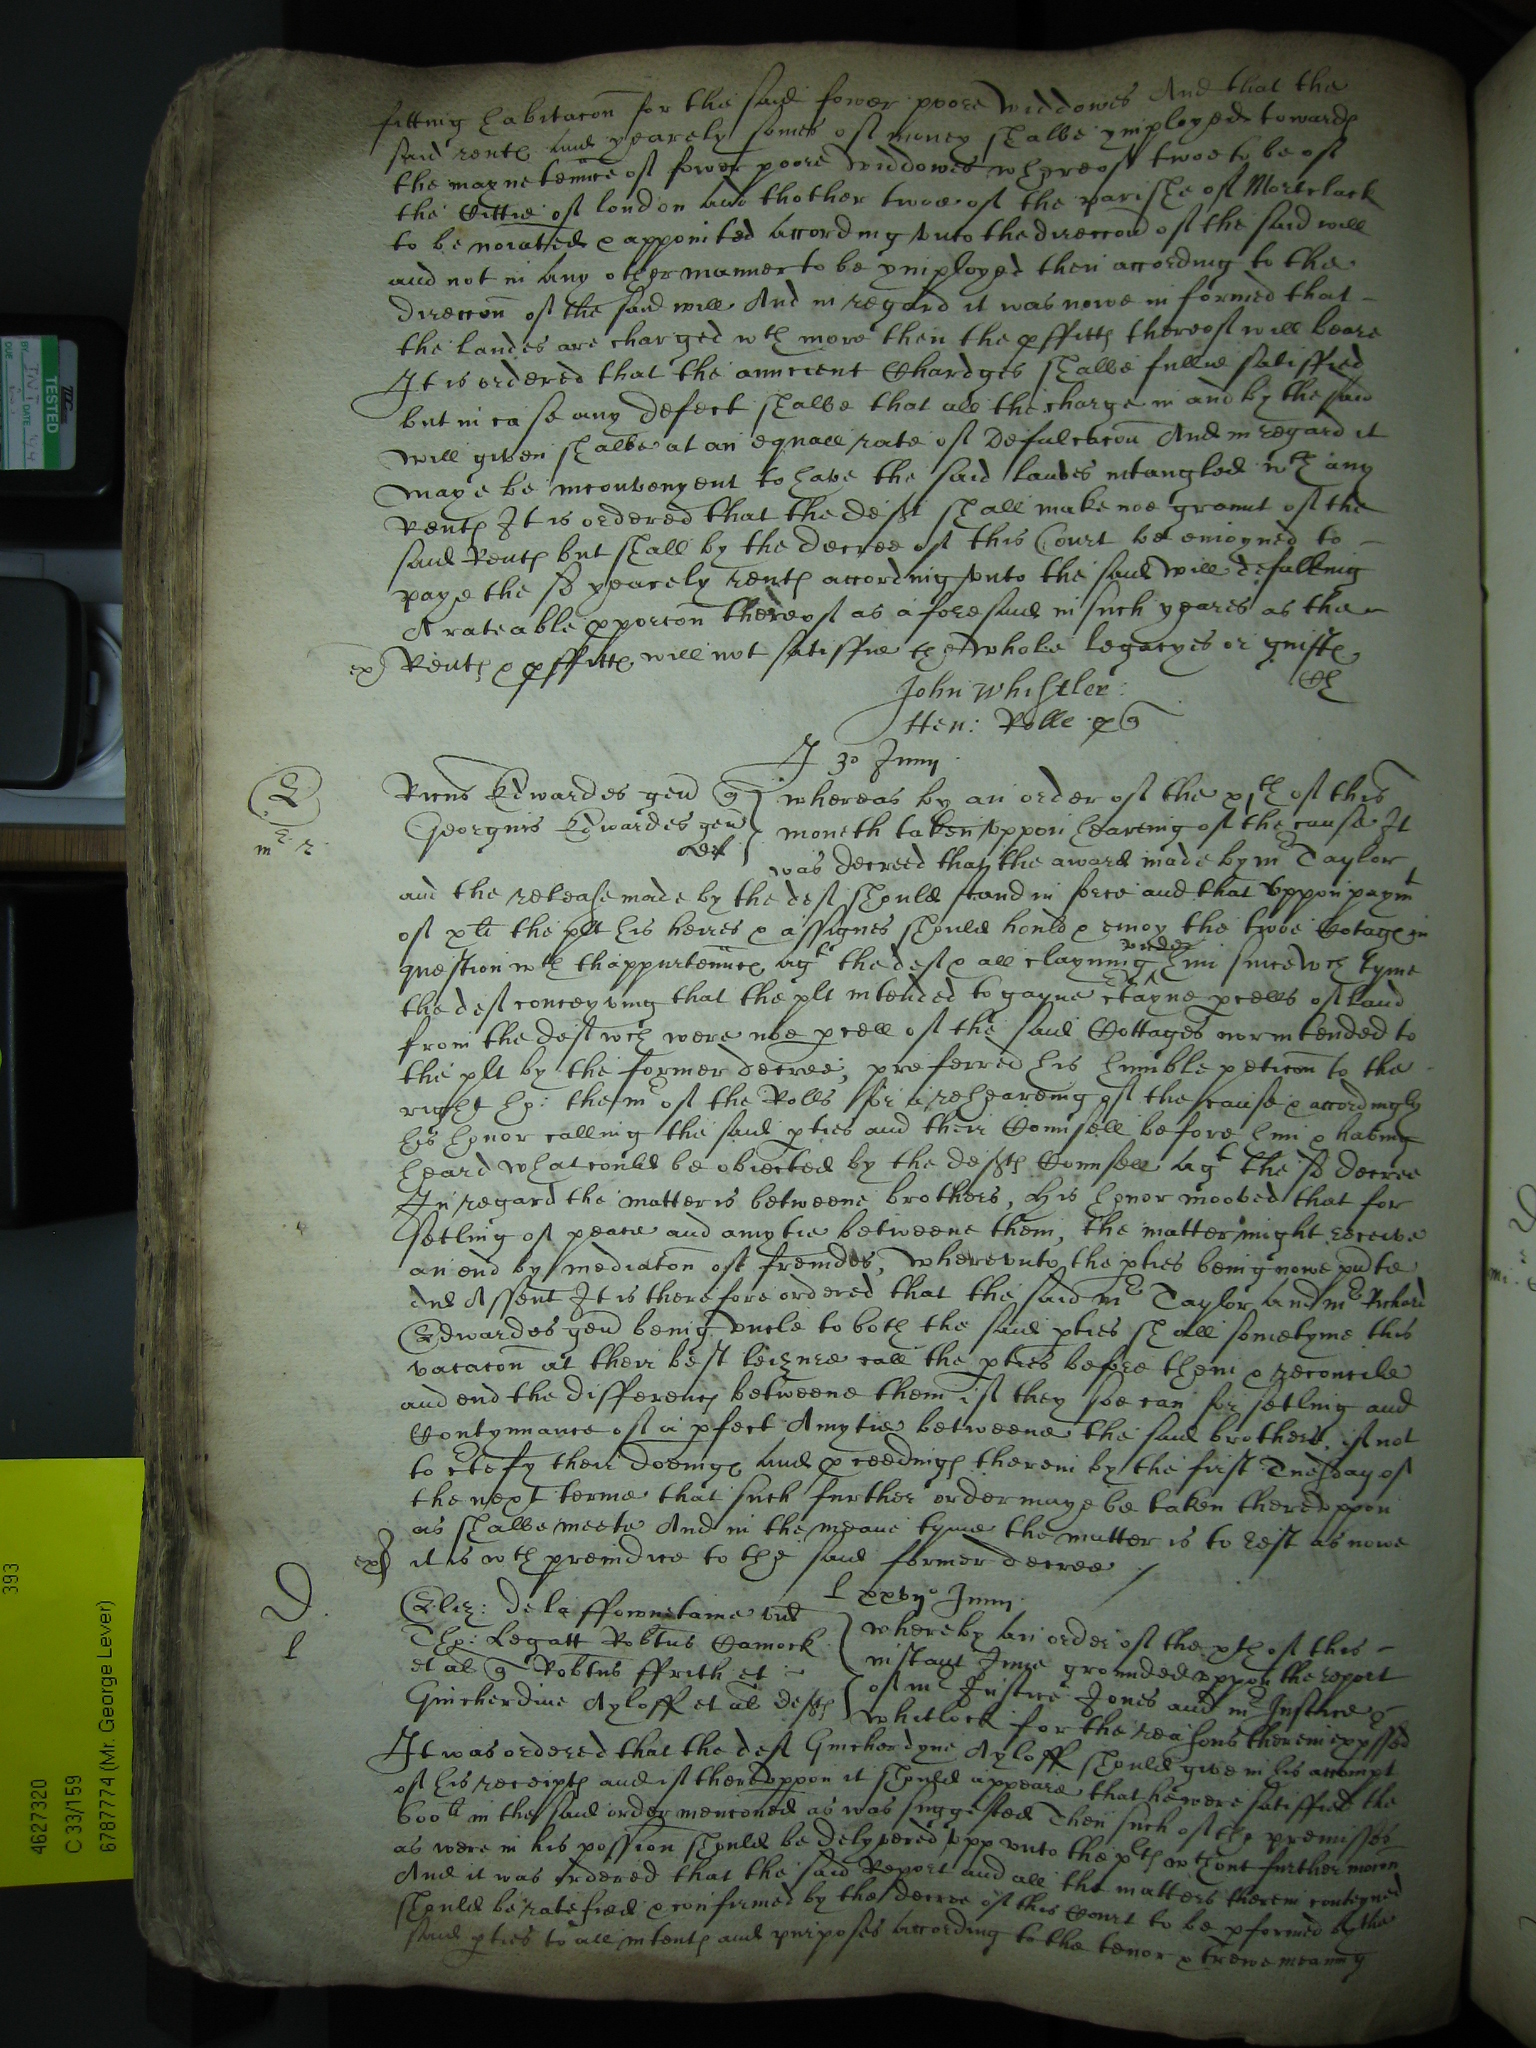 fitting habitacon for the said fower poore widdowes And that the
said rents and yearely somes of money shalbe ymployed towards
the mayntennce of fower poore widdowes whereof twoe to be of
the Cittie of London and thother twoe of the parishe of Mortclack
to be noiated & appointed according unto the direccon of the said will
and not in any other manner to be ymployed then according to the
direccon of the said will And in regard it was nowe informed that
the landes are charged wth more then the pffitts thereof will beare
It is ordered that the auncient Chardges shalbe fullie satisfied
but in case any defect shalbe that all the charge in and by the said
will given shalbe at an equall rate of defalcacon And in regard it
maye be inconvenyent to have the said landes intangled wth any
Rents It is ordered that the deft shall make noe graunt of the
said Rents but shall by the decree of this Court be enioyned to
paye the sd yearely rents according unto the said will defalking
A rateable pporcon thereof as aforesaid in such yeares as the
Rents & pffitts will not satisfie the whole legacyes or guifts
John Whistler:
Hen: Rolle p q
A 30 Junij
Ricus Edwardes gen q
Georgius Edwardes gen
def
whereas by an order of the xjth of this
moneth taken uppon heareing of the cause It
was decreed that the award made by mr Taylor
and the release made by the deft should stand in force and that uppon paymt
of xli the plt his heires & assignes should hould & enioy the twoe Cotages in
question wth thappurtennces agt the deft & all clayming under him since wch tyme
the deft conceyving that the plt intended to gayne ctayne pcells of land
from the deft wch were noe pcell of the said Cottages nor intended to
the plt by the former decree, preferred his humble peticon to the
right ho: the mr of the Rolls for a rehearing of the cause & accordingly
his honor calling the said pties and their Counsell before him & having
heard what could be obiected by the defts Counsell agt the sd decree
In regard the matter is betweene brothers, His honor mooved that for
setling of peace and amytie betweene them, the matter might receive
an end by mediaton of freindes, wherevnto the pties being nowe pnte
did Assent It is therefore ordered that the said mr Taylor and mr Richard
Edwardes gen being uncle to both the said pties shall sometyme this
vacacon at their best leizure call the pties before them & reconcile
and end the differencs betweene them if they soe can for setling and
Contynuance of a pfect Amytie betweene the said brothers, if not
to ctefy their doeings and pceedings therein by the first Tuesday of
the next terme that such further order maye be taken thereuppon
as shalbe meete And in the meane tyme the matter is to rest as nowe
it is wth preiudice to the said former decree /
L xxvijo Junij
Eliz: dela ffountaine vid
Tho: Legatt Robtus Camock
et al q Robtus ffrith et
Guicherdine Ayloff et al defts
whereby an order of the xth of this
instant June grounded uppon the report
of mr Justice Jones and mr Justice
Whitlock for the reasons therein expssed
It was ordered that the deft Guicherdyne Ayloff should give in his accompt
of his receipts and if thereuppon it should appeare that he were satisfied the
600li in the said order menconed as was suggested Then such of the premisses
as were in his possion should be delyvered upp unto the plts wthout further mocon
And it was ordered that the said Report and all the matters therein conteyned
should be ratefied & confirmed by the decree of this Court to be pformed by the
said pties to all intents and purposes according to the tenor & trewe meaning
TESTED
4627320
C 33/159
6787774 (Mr. George Lever)
393